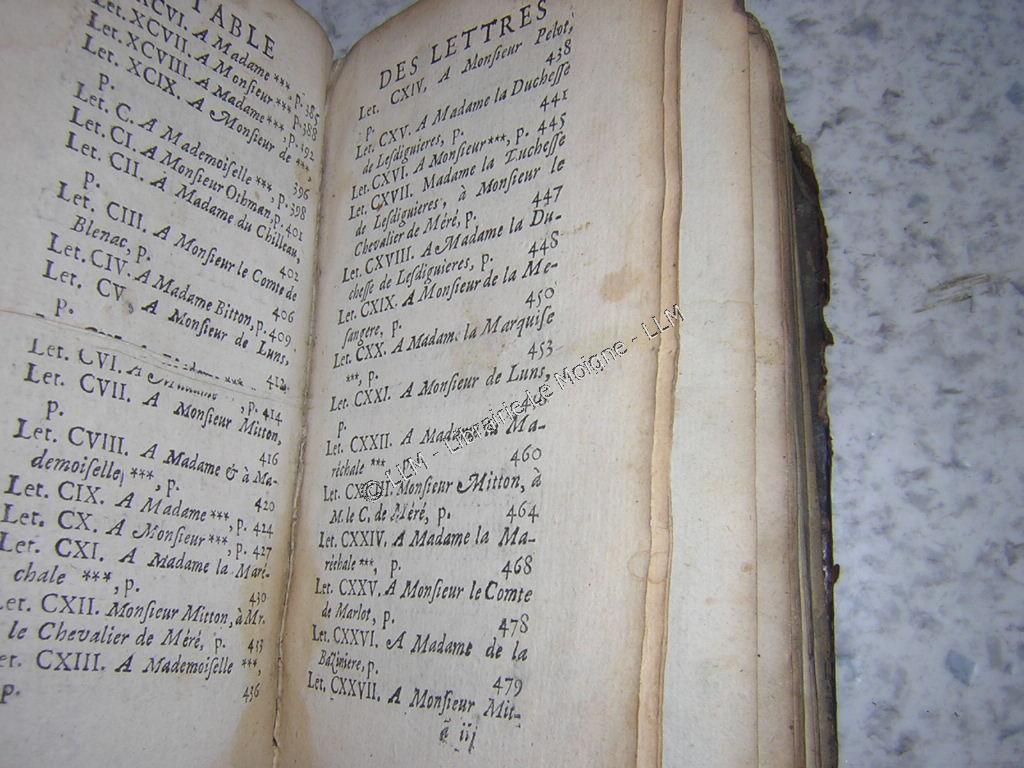 TABLE
Let. XCVI. A Madame *** p. 385
Let. XCVII. A Monſieur *** p. 388
Let. XCVIII. A Madame ***, p. 392
Let. XCIX. A Monſieur de ***,
p. 396
Let. C. A Mademoiſelle ***, p. 398
Let. CI. A Monſieur Othman, p. 401
Let. CII. A Madame du Chilleau,
p. 402
Let. CIII. A Monſieur le Comte de
Blenac, p. 406
Let. CIV. A Madame Bitton, p. 409
Let. CV. A Monſieur de Luns,
p. 412
Let. CVI. A , p. 414
Let. CVII. A Monſieur Mitton,
p. 416
Let. CVIII. A Madame & à Ma-
demoiſelle, ***, p. 420
Let. CIX. A Madame ***, p. 424
Let. CX. A Monſieur ***, p. 427
Let. CXI. A Madame la Maré-
chale ***, p. 430
Let. CXII. Monſieur Mitton, à Mr.
le Chevalier de Méré, p. 433
Let. CXIII. A Mademoiſelle ***,
p. 436
DES LETTRES
Let. CXIV. A Monſieur Pelot,
p. 438
Let. CXV. A Madame la Ducheſſe
de Leſdiguieres, p. 441
Let. CXVI. A Monſieur ***, p. 445
Let. CXVII. Madame la Ducheſſe
de Leſdiguieres, à Monſieur le
Chevalier de Méré, p. 447
Let. CXVIII. A Madame la Du-
cheſſe de Leſdiguieres, p. 448
Let. CXIX. A Monſieur de la Me-
ſangere, p. 450
Let. CXX. A Madame la Marquiſe
***, p. 453
Let. CXXI. A Monſieur de Luns,
p.
Let. CXXII. A Madame la Ma-
réchale *** 460
Let. CXXIII. Monſieur Mitton, à
M. le C. de Méré, p. 464
Let. CXXIV. A Madame la Ma-
réchale ***, p. 468
Let. CXXV. A Monſieur le Comte
de Marlot, p. 478
Let. CXXVI. A Madame de la
Baziniere, p. 479
Let. CXXVII. A Monſieur Mit-
ã iij
© LLM - Librairie Le Moigne - LLM